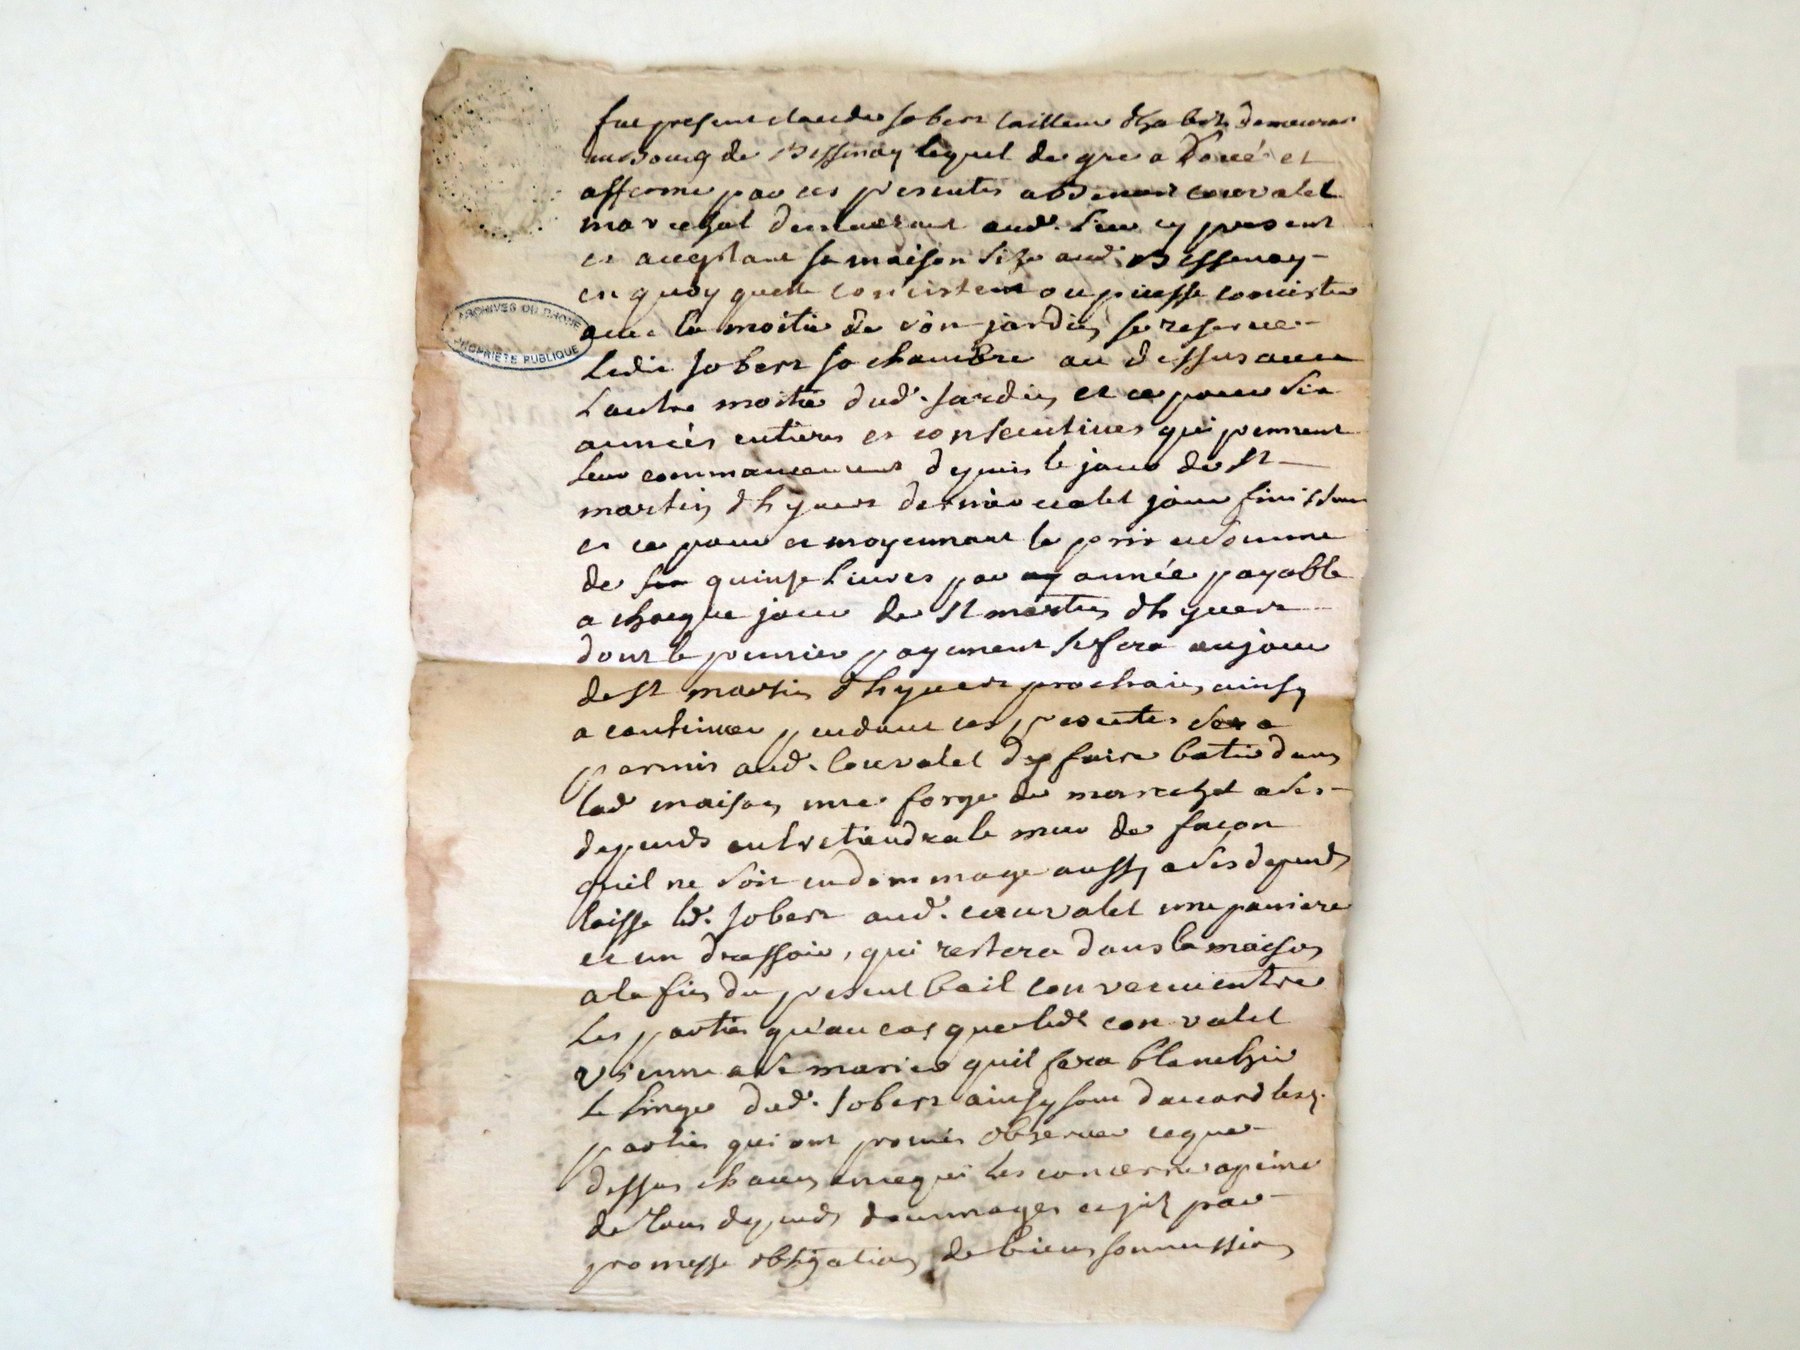 fut present claude Jobert tailleur dhabits demeurant
au Bourg de Bessenay lequel de gre a Loué et
afferme par ces presentes a couvalet
marechal demeurant aud. Lieu cy present
et aceptant sa maison size aud. Bessenay
en quoy quelle concistent ou puisse concister
avec la moitie de son jardin se reserve
Ledit Jobert sa chambre au dessus avec
Lautre moitie dud. Jardin et ce pour Six
années entieres et consecutives qui prennent
Leur commancement depuis le jour de St
martin dhyvert dernier et alet jour finissant
et ce pour et moyennant le prix et Somme
de quinse Livres par année payable
a chaque jour de St martin dhyvert
dont le premier payement se fera au jour
de St martin dhyvert prochain ainsy
a continuer pendant ces presentes Sera
permis aud. Couvalet dy faire batir dans
lad maison une forge de marechal a Ses
depends entretiendra le mur de facon
quil ne Soit endommage aussy a Ses depends
laisse led. Jobert aud. couvalet une paniere
et un dressoir, qui restera dans la maison
a la fin du present bail convenu entre
Les parties qu'au cas que ledt couvalet
vienne a Se marier quil fera blanchir
Le Linge dud. Jobert ainsy sont daccord lesd.
parties qui ont promis observer ce que
dessus chacun en ce qui Les concerne a peine
de tous depends dommages par
promesse obligation de biens soumission